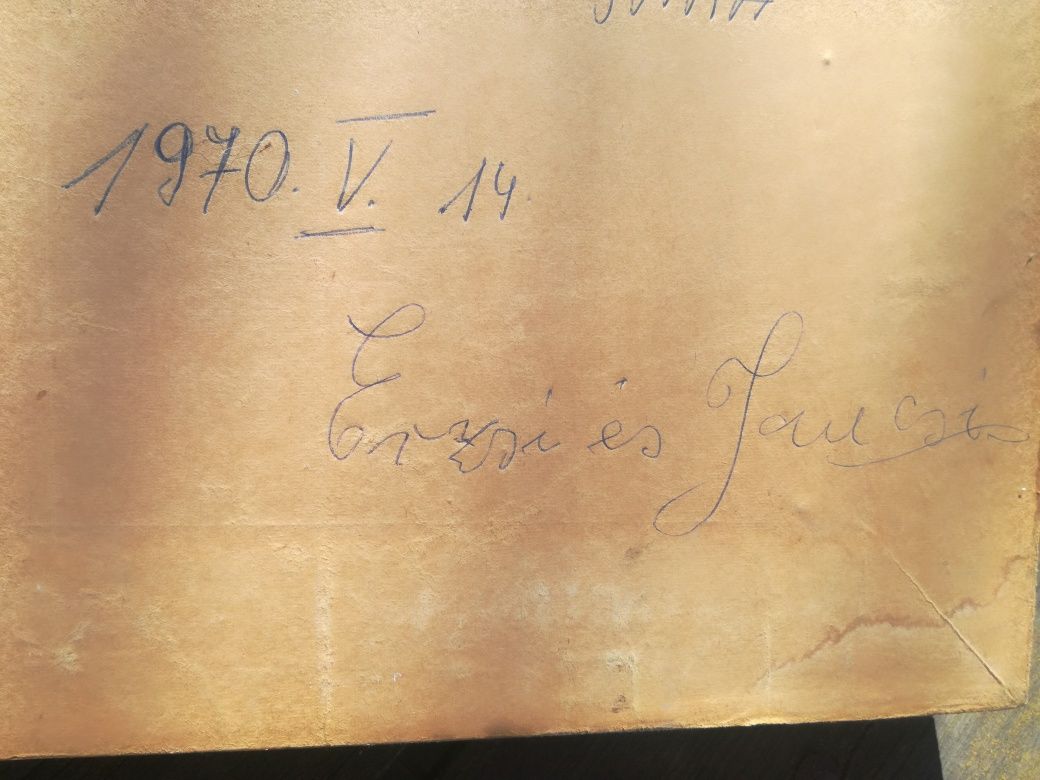 1970. V. 14.
Erzsi és Jancsi